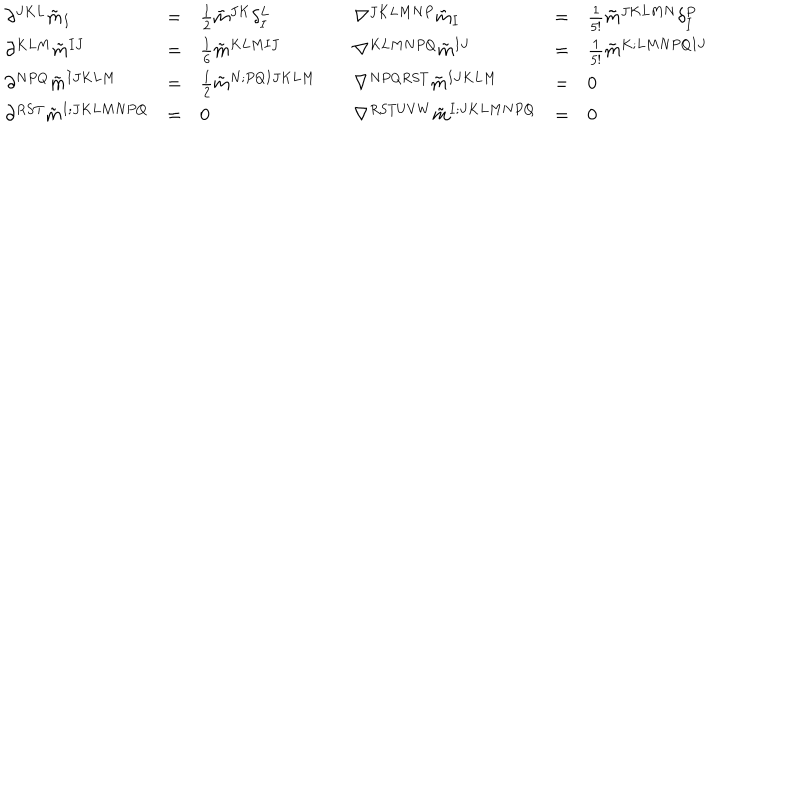 ∂^{JKL} m̃_I = \frac{1}{2} m̃^{JK} δ^L_I    ∇^{JKLMNP} m̃_I = \frac{1}{5!} m̃^{JKLMN} δ^P_I
∂^{KLM} m̃^{IJ} = \frac{1}{6} m̃^{KLMIJ}    ∇^{KLMNPQ} m̃^{IJ} = \frac{1}{5!} m̃^{K;LMNPQIJ}
∂^{NPQ} m̃^{IJKLM} = \frac{1}{2} m̃^{N;PQIJKLM}    ∇^{NPQRST} m̃^{IJKLM} = 0
∂^{RST} m̃^{I;JKLMNPQ} = 0    ∇^{RSTUVW} m̃^{I;JKLMNPQ} = 0